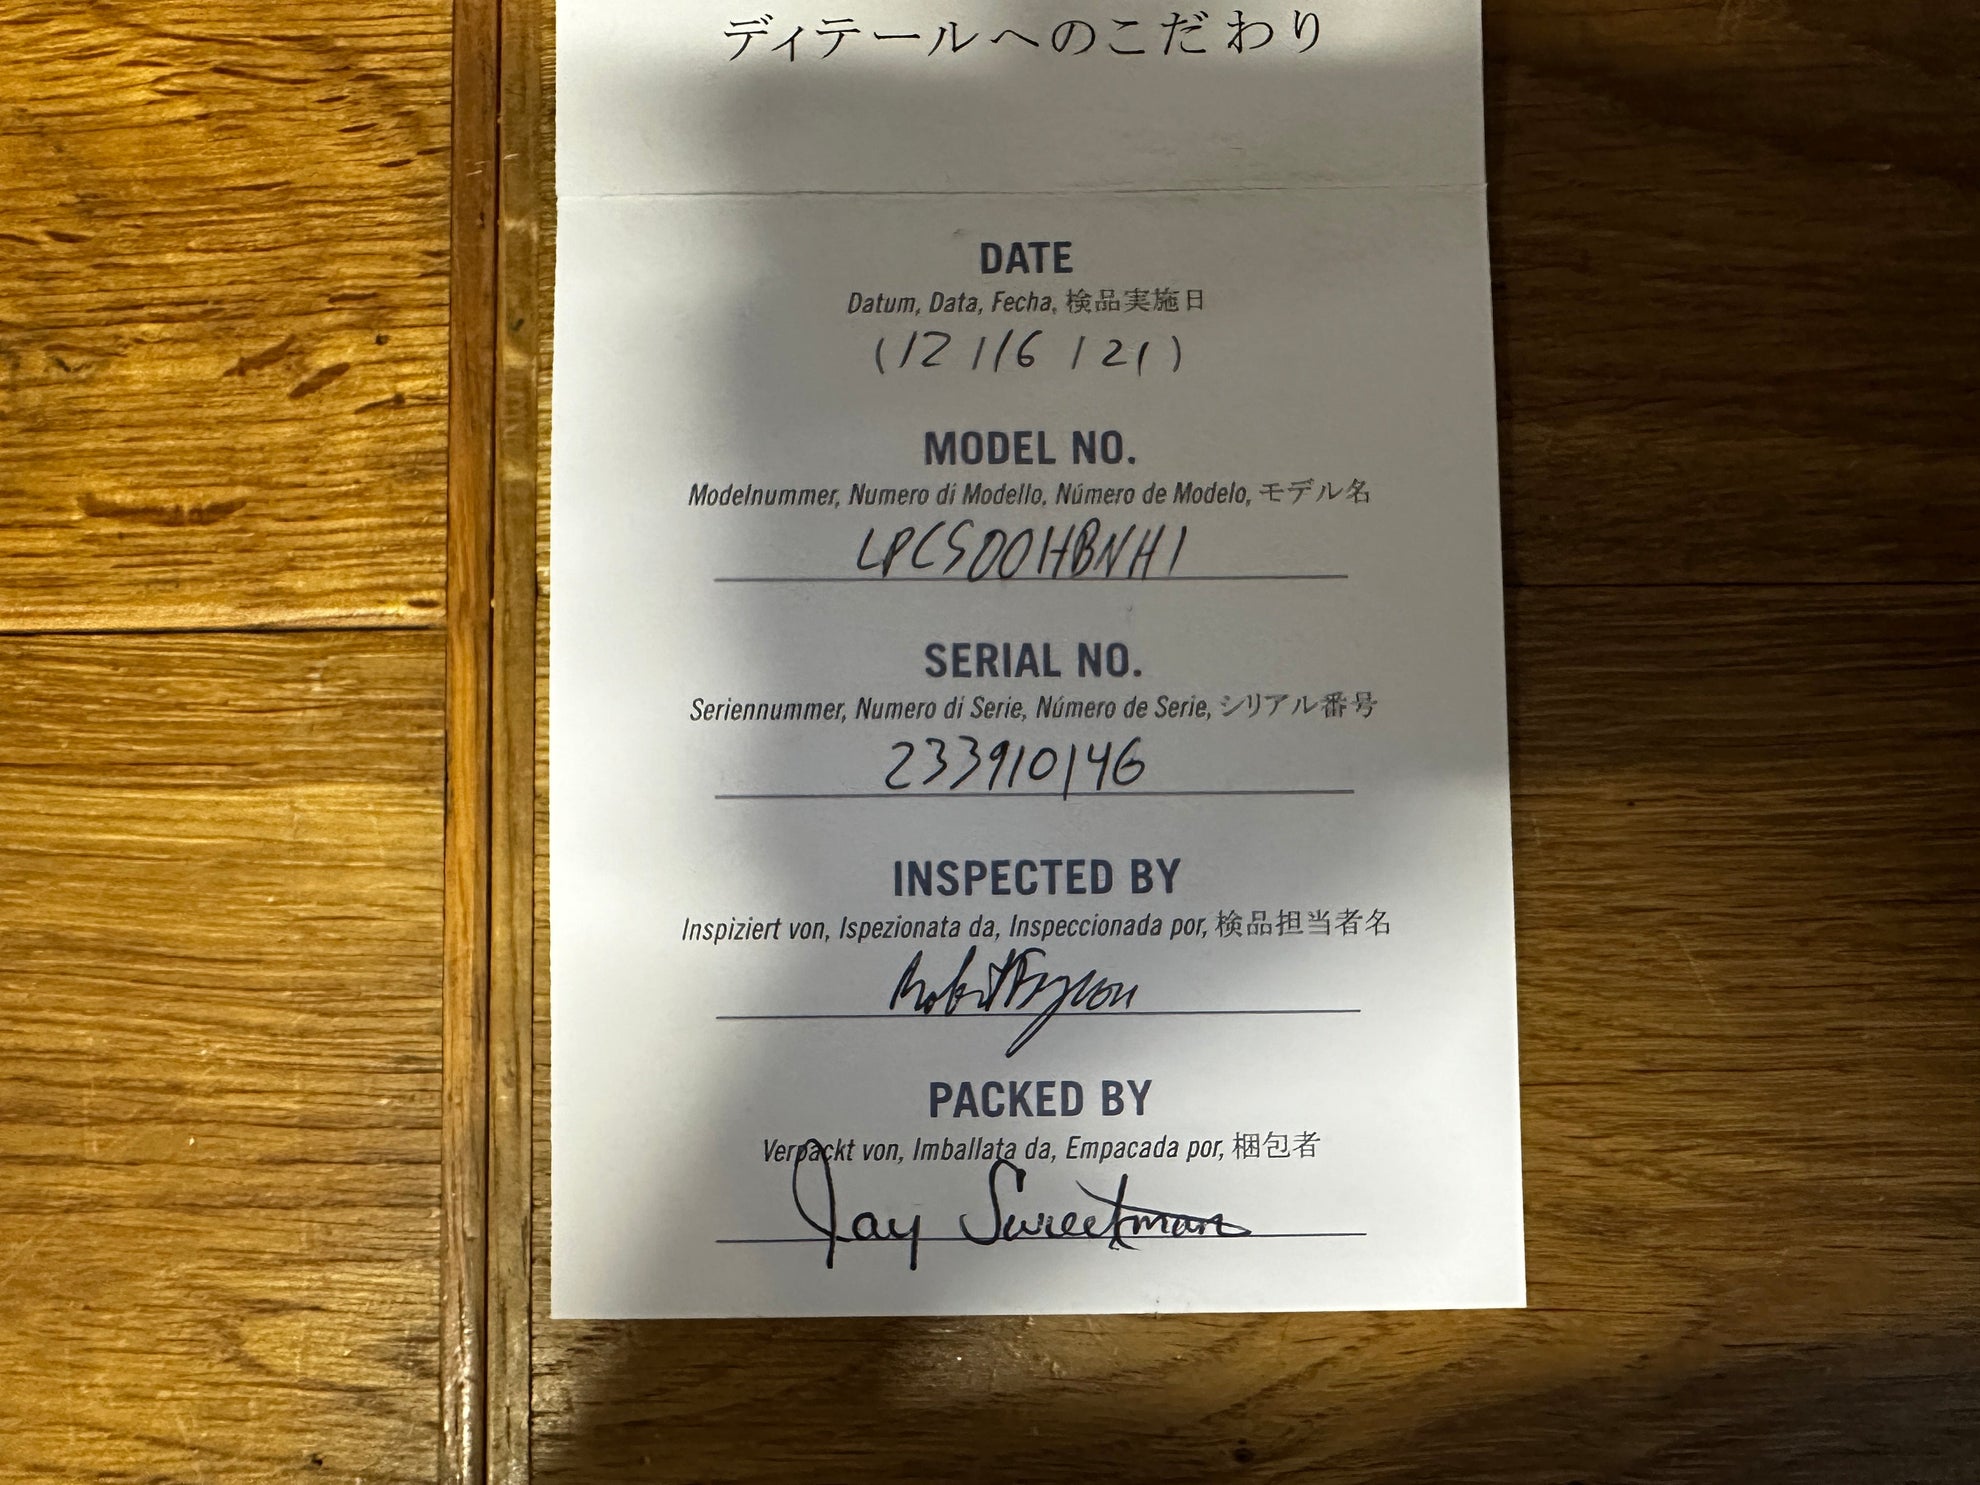 ディテールへのこだわり
DATE
Datum, Data, Fecha, 検品実施日
(12 / 16 / 21)
MODEL NO.
Modelnummer, Numero di Modello, Número de Modelo, モデル名
LPCS00HBNH1
SERIAL NO.
Seriennummer, Numero di Serie, Número de Serie, シリアル番号
233910146
INSPECTED BY
Inspiziert von, Ispezionata da, Inspeccionada por, 検品担当者名
Robert
PACKED BY
Verpackt von, Imballata da, Empacada por, 梱包者
Jay Sweetman